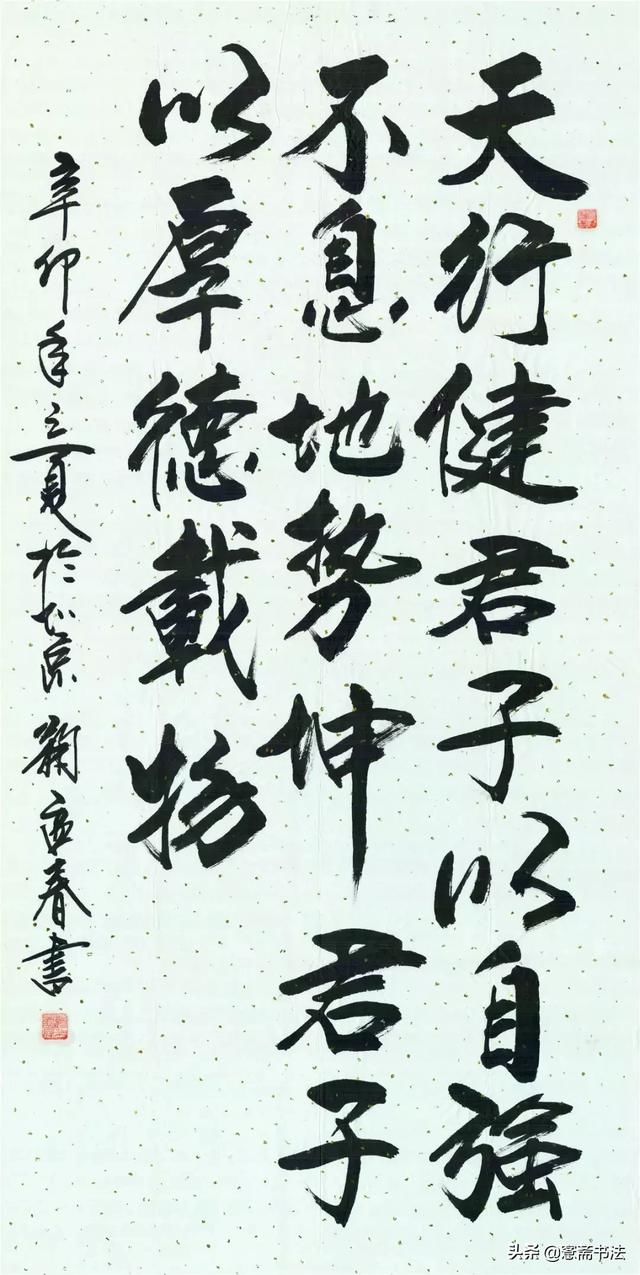 天行健君子以自強
不息地勢坤君子
以厚德載物
辛卯年夏於北京春書
头条 @斋书法